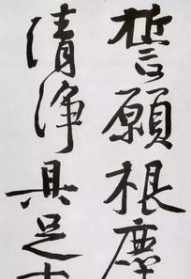 誓願根塵
清淨具足